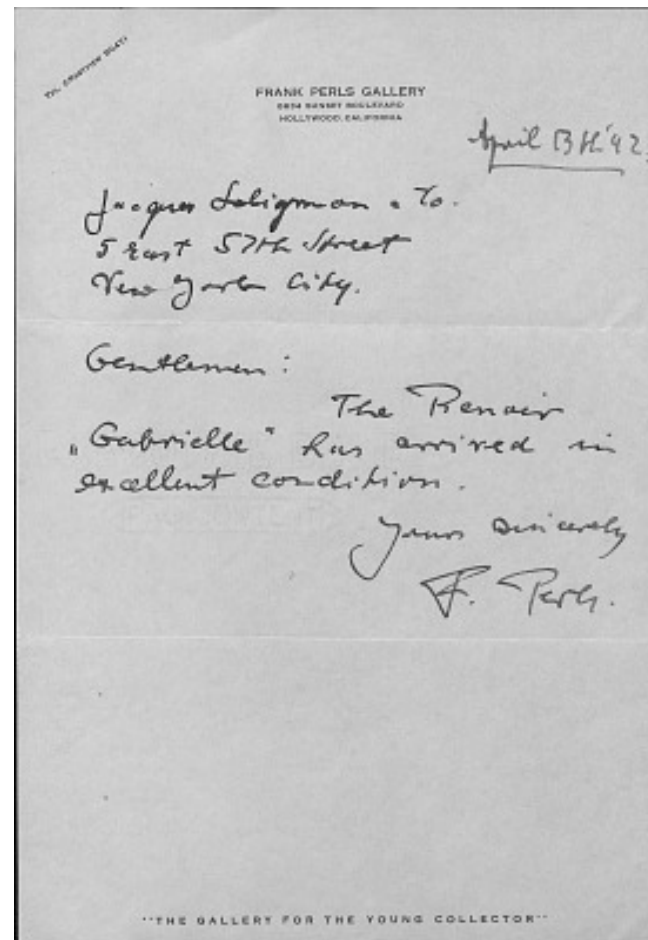 FRANK PERLS GALLERY
SUNSET BOULEVARD
HOLLYWOOD, CALIFORNIA
April 13th '42.
Jacques Seligman & Co.
5 East 57th Street
New York City.
Gentlemen:
The Renoir
„Gabrielle" has arrived in
excellent condition.
Yours sincerely
F. Perls.
"THE GALLERY FOR THE YOUNG COLLECTOR"